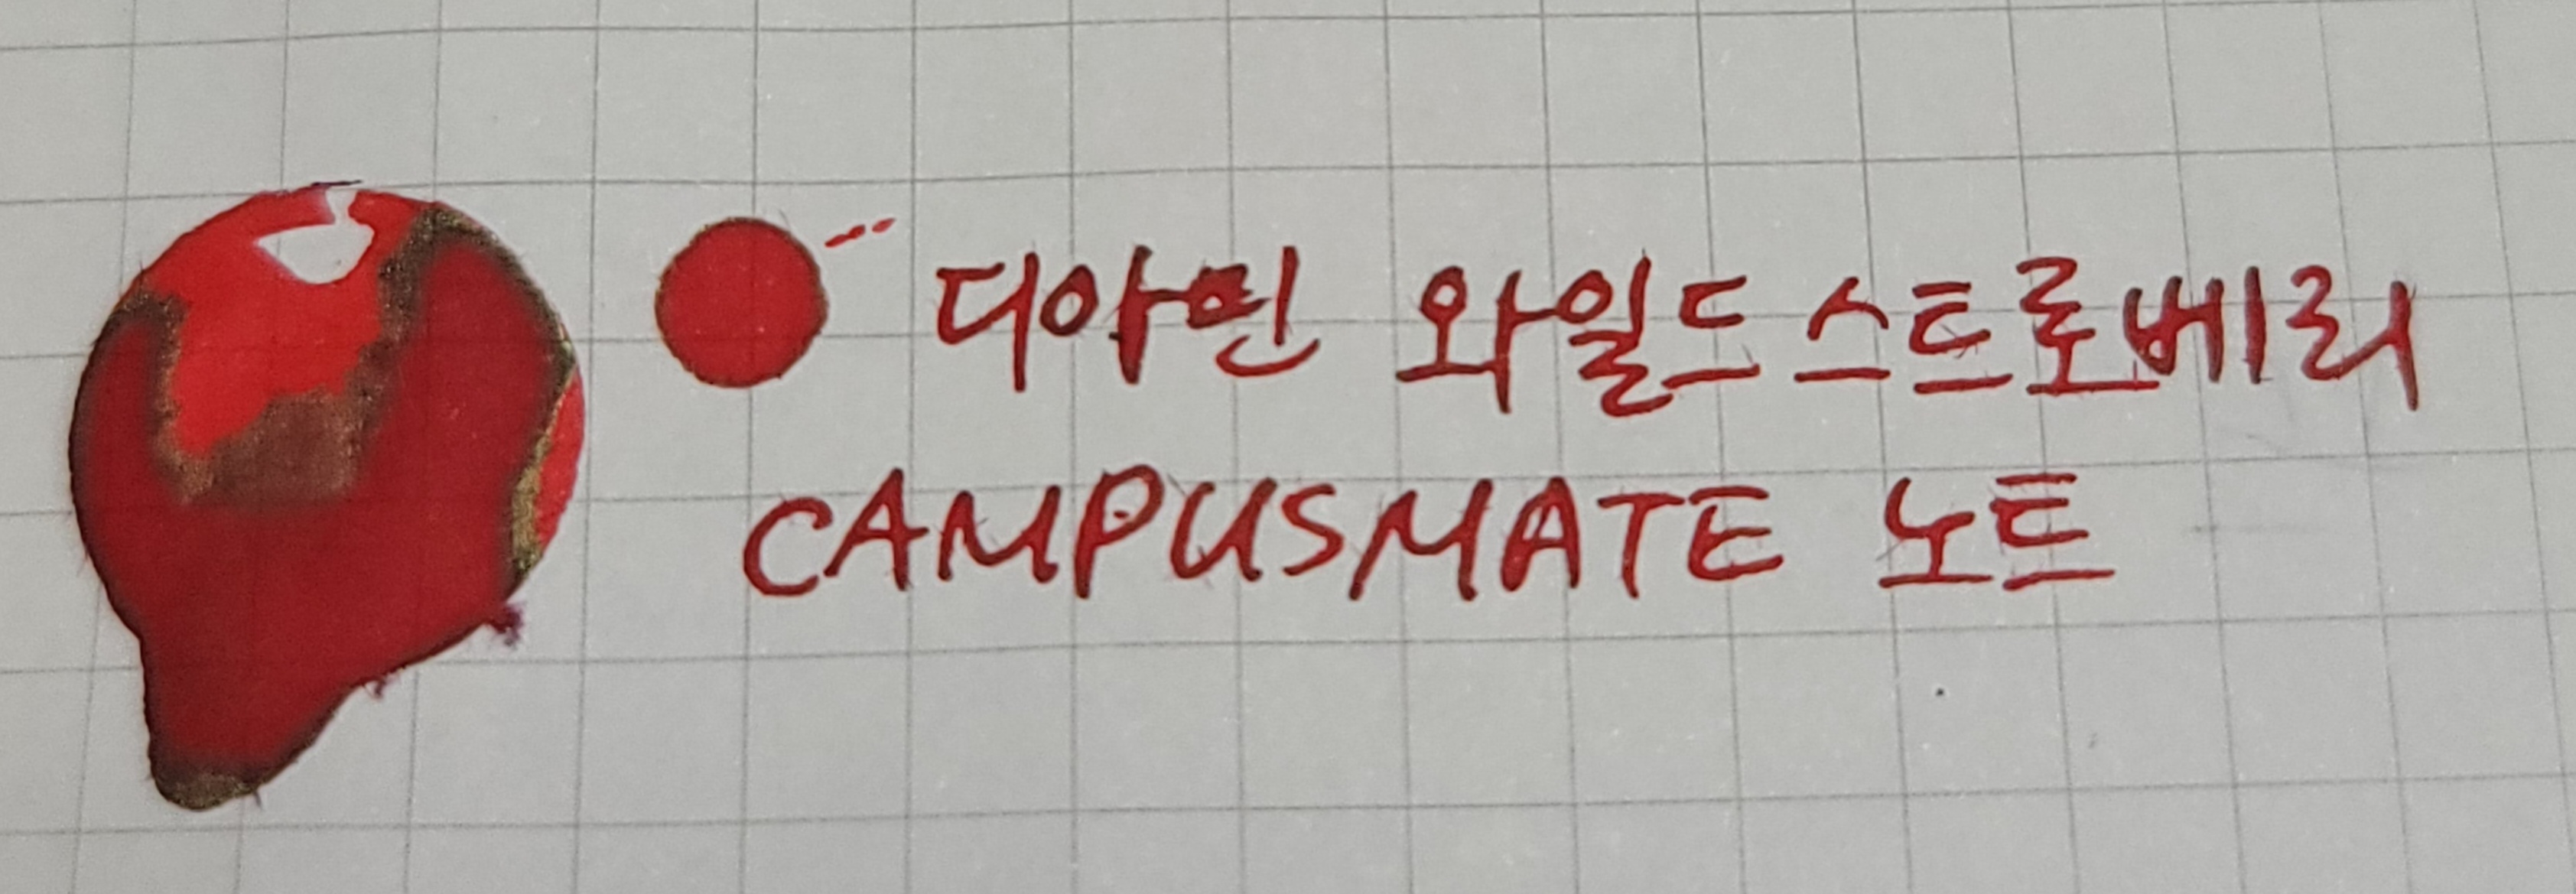 디아민 와일드스트로베리
CAMPUSMATE 노트